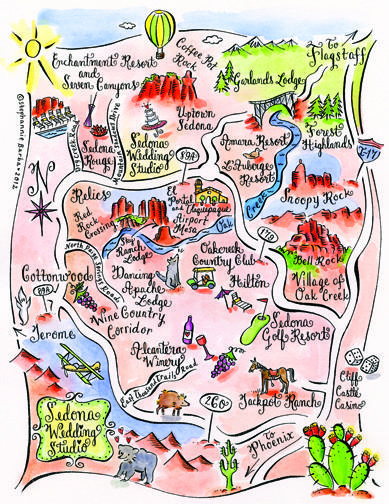 Enchantment Resort
and
Seven Canyons
Coffee Pot
Rock
To
Flagstaff
Garlands Lodge
©Stephannie Barba•2012
Dry Creek Road
Sedona
Rouge
Sedona
Wedding
Studio
Uptown
Sedona
89A
Amara Resort
L'Auberge
Resort
Forest
Highlands
I-17
N
Relics
Red
Rock
Crossing
El
Portal
and
Tlaquepaque
Airport
Mesa
Oak
Creek
Snoopy Rock
Sky
Ranch
Lodge
179
Bell Rock
Village of
Oak Creek
Cottonwood
89A
Dancing
Apache
Lodge
Oakcreek
Country Club
Hilton
Wine Country
Corridor
Jerome
Alcantara
Winery
Sedona
Golf Resort
East Thousand Trails Road
260
Jackpot Ranch
Cliff
Castle
Casino
Sedona
Wedding
Studio
To
Phoenix